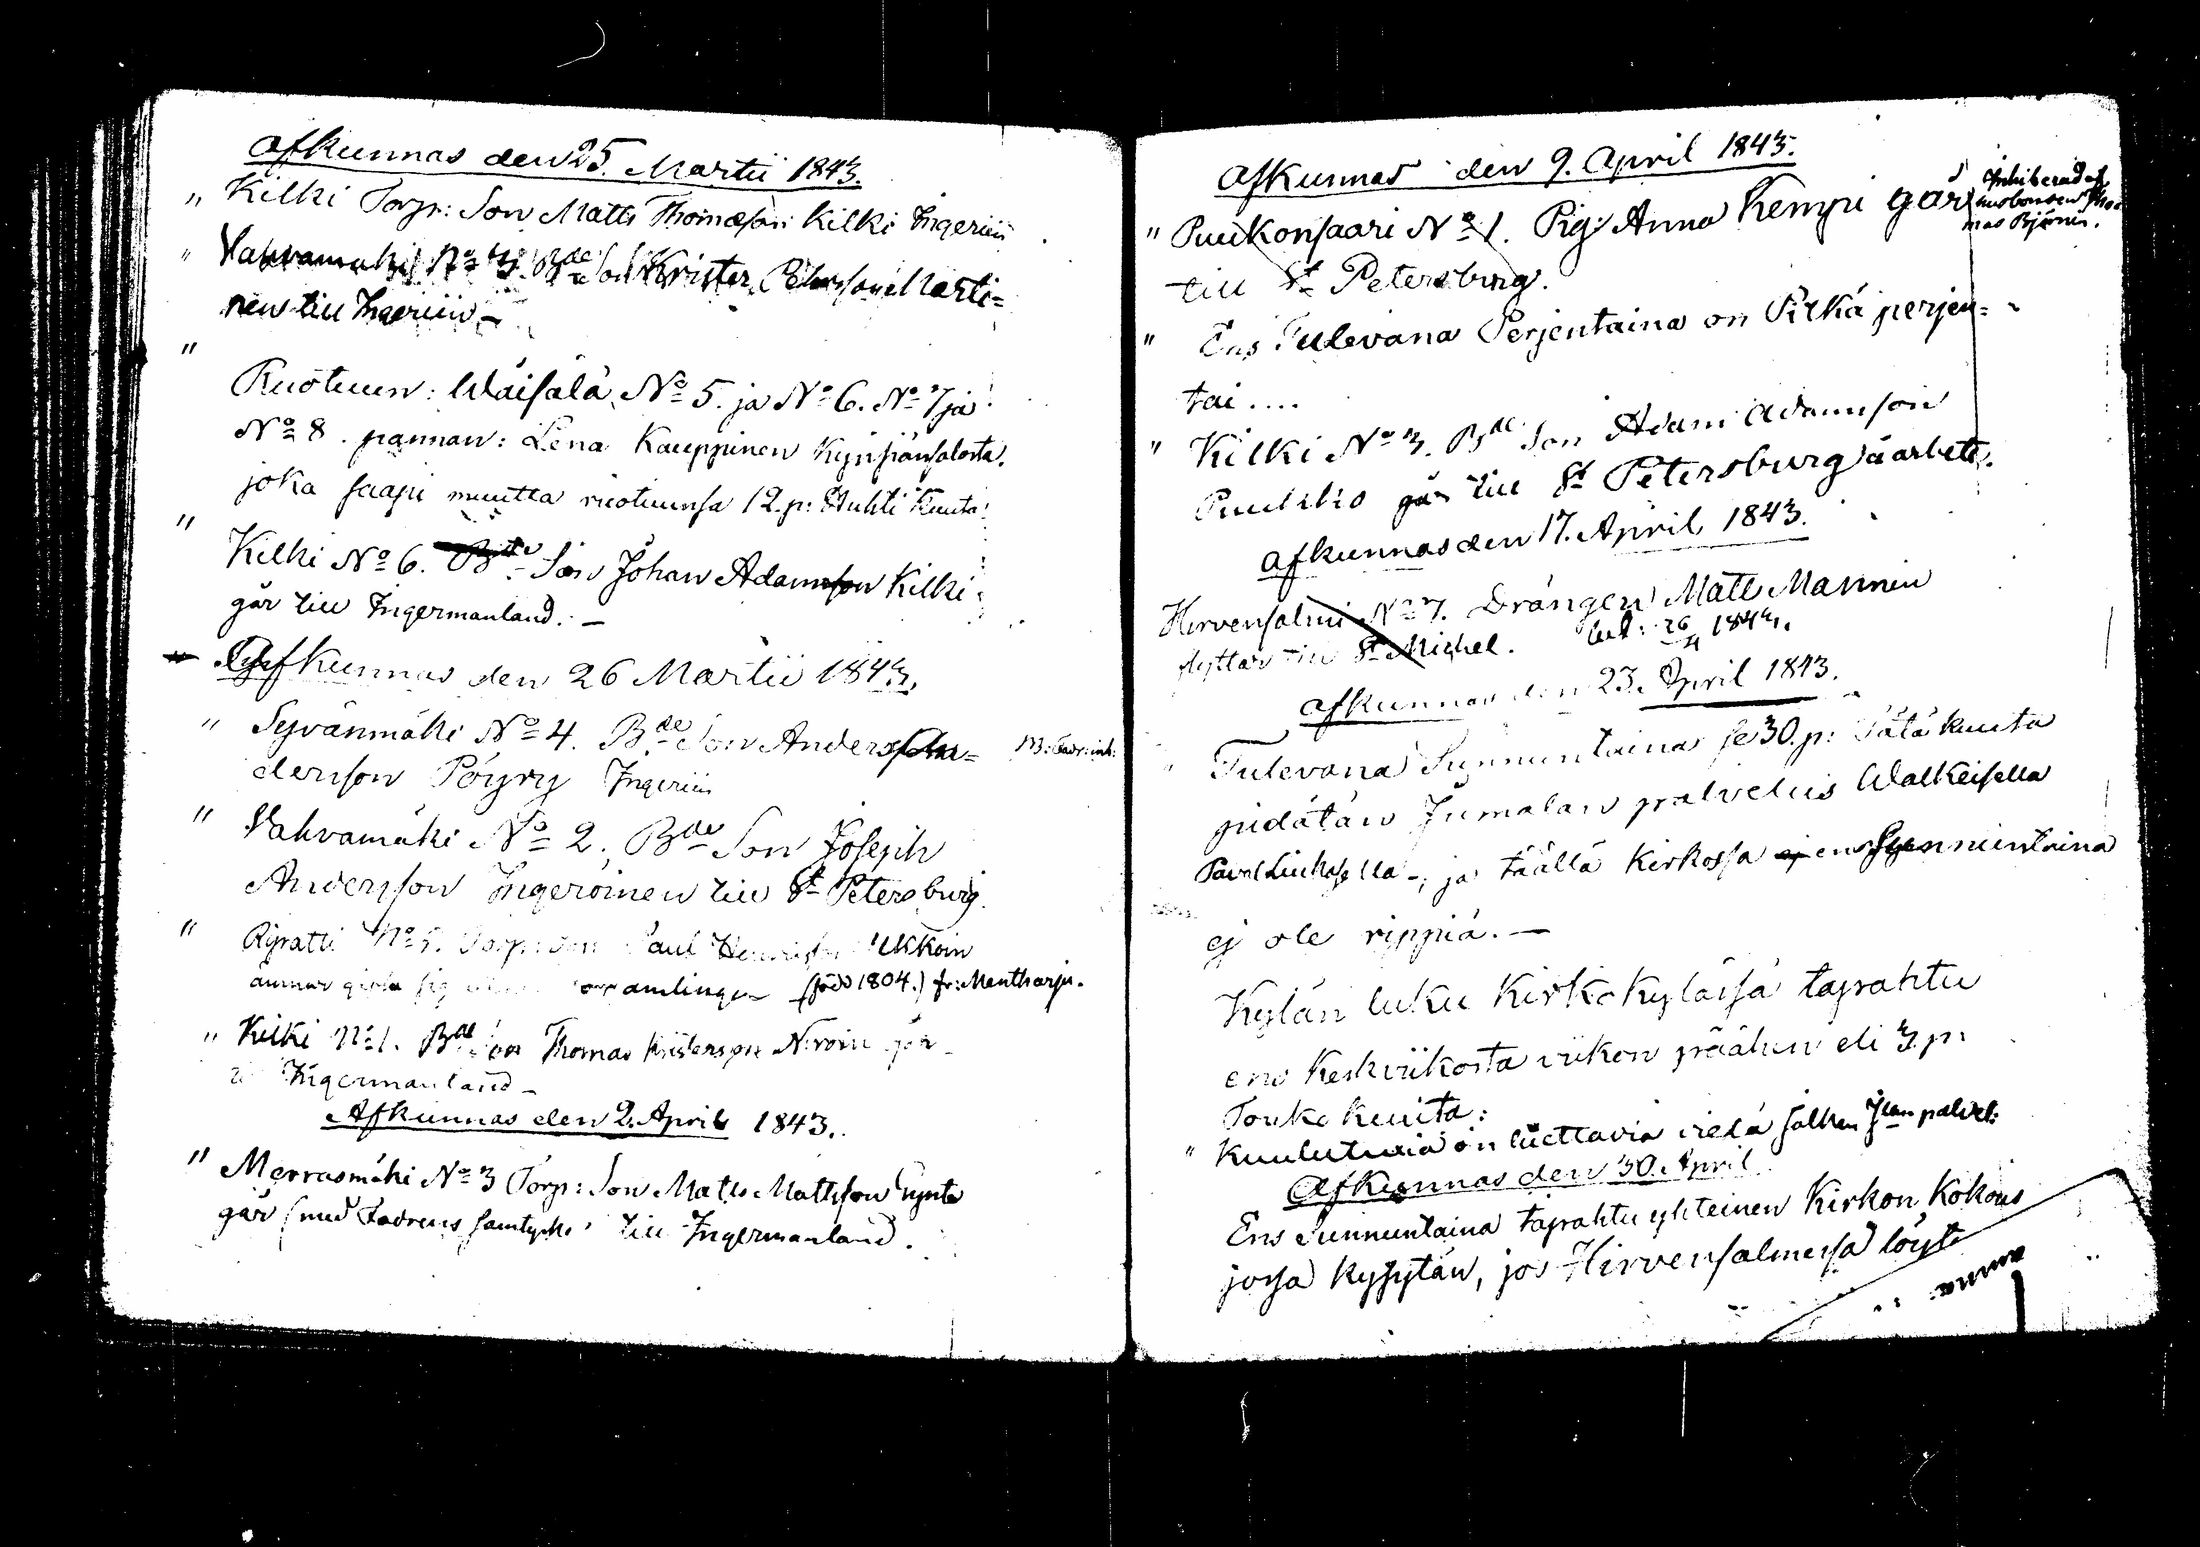 Afkunnas den 25. Martii 1843.
" Kilki Torp: Son Matts Thomæson Kilki Ingeriin
" Vahvamäki No 3. Bde Son Krister Pehrson Marti=
nen till Ingeriin –
"
Ruotuun: Wäisälä No 5. ja No 6. No 7 ja
No 8. pannan: Lena Kauppinen Kynsiänsalosta,
joka saapi muutta ruotuunsa 12. p: Huhti Kuuta
" Kilki No 6. Son Johan Adamson Kilki
går till Ingermanland. –
Afkunnas den 26 Martii 1843.
" Syvänmäki No 4. Bde Son Anders An=
derson Pöyry Ingeriin
" Vahvamäki No 2. Bde Son Joseph
Anderson Ingeroinen till St Petersburg.
" Ripatti No 5. Torp: Son Paul Ukkoin
ämnar gifta sig (född 1804.) fr: Mentharju.
" Kilki No 1. Bde Son Thomas Kristerson går
Ingermanland –
Afkunnas den 2. April 1843.
" Merrasmäki No 3 Torp: Son Matts Mattson
går (med Fadrens samtycke) till Ingermanland.
Afkunnas den 9. April 1843.
" Puukonsaari No 1. Pig: Anna Kempi går
Inhiberad af
husbonden Tho=
mas Björnin.
till St Petersburg.
" Ens Tulevana Perjentaina on Pitkä perjen=
tai ....
" Kilki No 3. Bde Son Adam Adamson
Puukko går till St Petersburg å arbete.
Afkunnas den 17. April 1843.
Hirvensalmi No 7. Drängen Matts Manninen
flyttar till St Michel. bet: 26/4 1843.
Afkunnas den 23. April 1843.
" Tulevana Sunnuntaina se 30. p: Tätä kuuta
pidätän Jumalan palvelus Walkeisella
Paul Liukosella –, ja täällä Kirkossa ens Sunnuntaina
ej ole rippiä. –
Kylän luku Kirkokylässä tapahtu
ens Keskviikosta viikon päähän eli 3. p:
Touko kuuta:
" Kuulutuxia on luettavia vielä jälken Jlan palvel:
Afkunnas den 30. April.
Ens Sunnuntaina tapahtu yhteinen Kirkon Kokous
jossa kysytän, jos Hirvensalmessa löyt